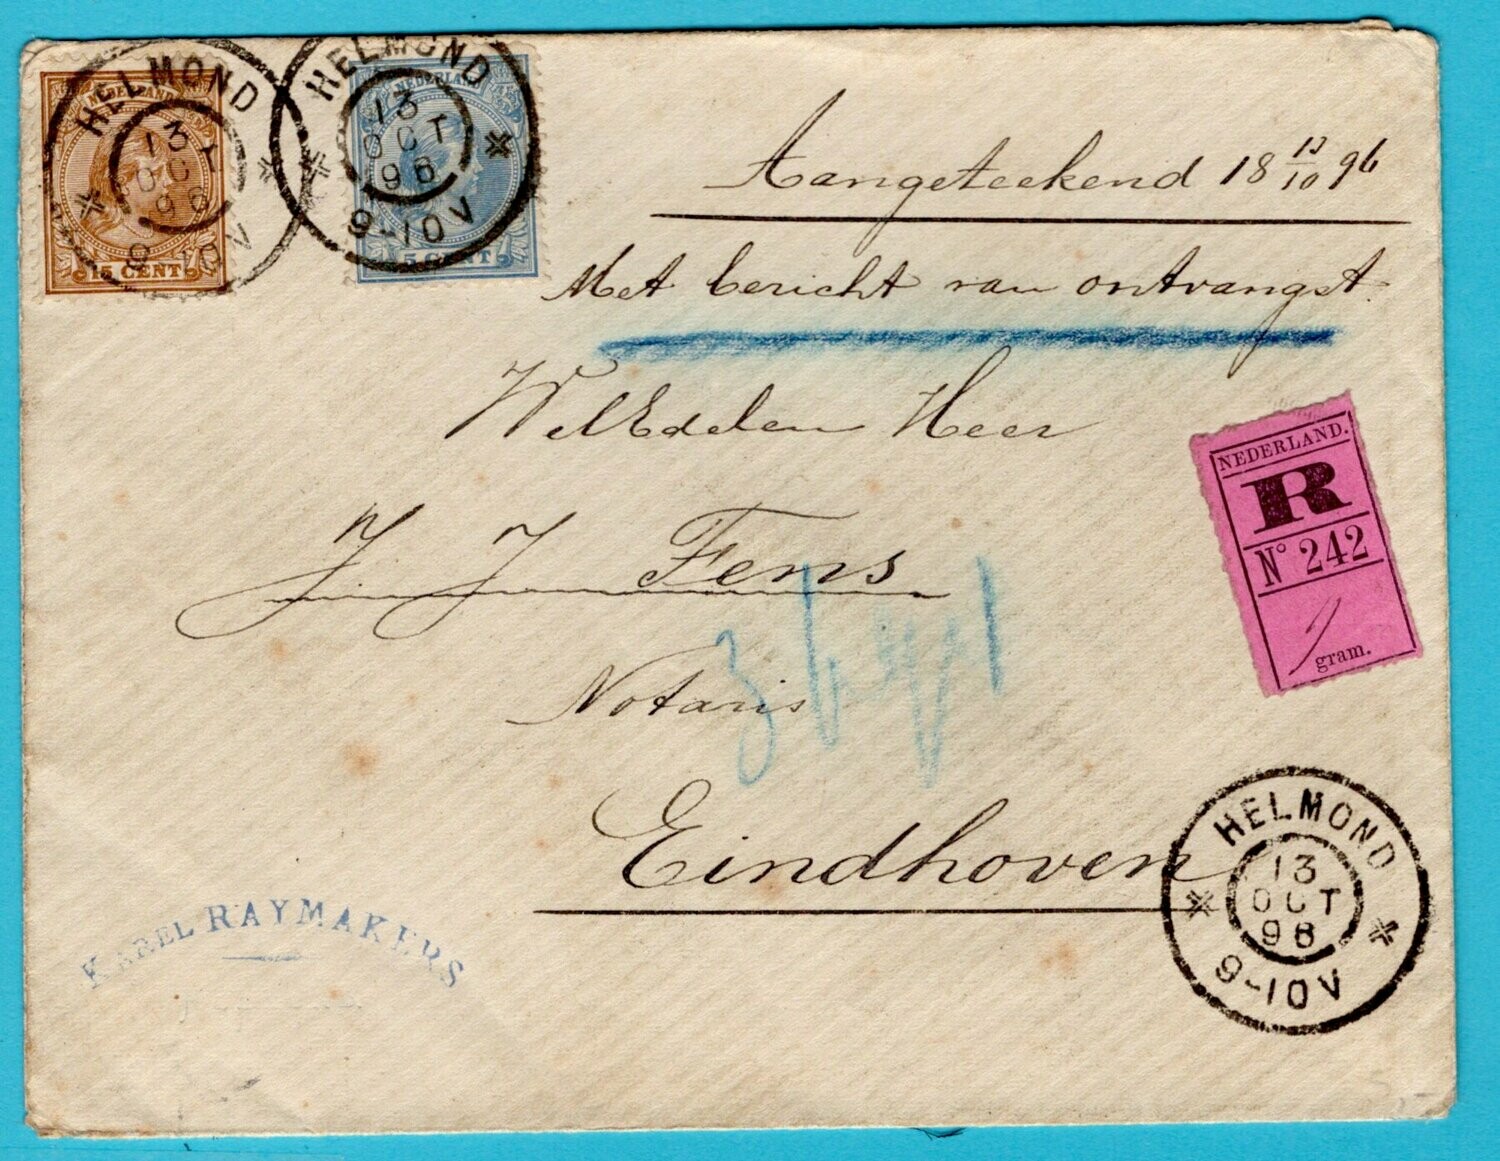 HELMOND
13
OCT
96
9-10V
NEDERLAND
15 CENT
HELMOND
13
OCT
96
9-10V
NEDERLAND
5 CENT
Aangeteekend 18 13/10 96
Met bericht van ontvangst
WelEdelen Heer
J J Fens
Notaris
Eindhoven
NEDERLAND.
R
N° 242
7
gram.
KAREL RAYMAKERS
HELMOND
13
OCT
96
9-10V